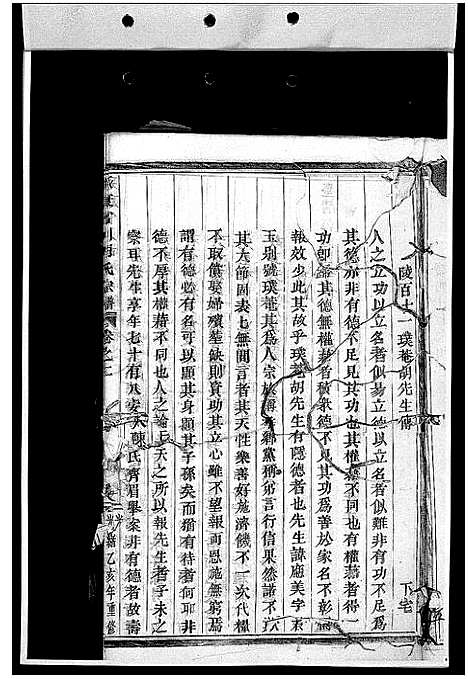 陵百十一 璞菴胡先生傳 下宅
人之立功以立名者似易立德以立名者似難非有功不足爲
其德亦非有德不足見其功也其權藉不同也有權藉者得一
功卽論其德無權藉者積衆德不見其功爲善於家名不彰
報效少此其故乎璞菴胡先生有隱德者也先生諱應美字
玉別號璞菴其爲人宗族稱孝鄉黨稱弟言行信果然諾不
其大節固表七無間言者其天性樂善好施濟饑不一次代糧
不取償娶婦殯塟缺則資功其立心雖不望報而恩施無窮焉
謂有德必有名可以顯其身顯其子孫矣而猶有待者何耶非
德不厚其權藉不同也人之論上天之所以報先生者乎未之
察耳先生享年七十有八安人陳氏齊眉舉案非有德者故壽
氏宗譜 卷之 光緒乙亥年重修